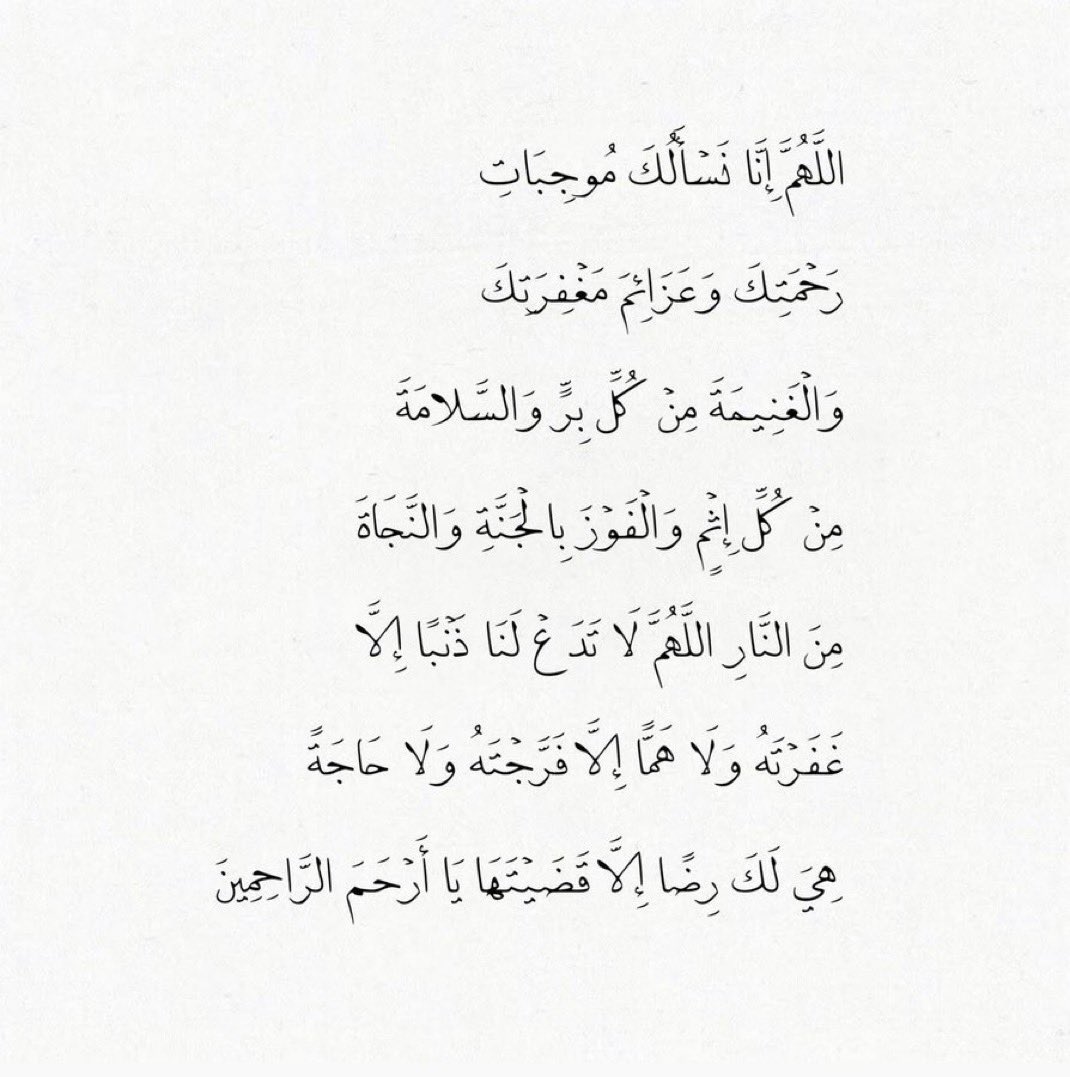 اللَّهُمَّ إِنَّا نَسْأَلُكَ مُوجِبَاتِ
رَحْمَتِكَ وَعَزَائِمَ مَغْفِرَتِكَ
وَالْغَنِيمَةَ مِنْ كُلِّ بِرٍّ وَالسَّلامَةَ
مِنْ كُلِّ إِثْمٍ وَالْفَوْزَ بِالْجَنَّةِ وَالنَّجَاةَ
مِنَ النَّارِ اللَّهُمَّ لَا تَدَعْ لَنَا ذَنْبًا إِلَّا
غَفَرْتَهُ وَلَا هَمًّا إِلَّا فَرَّجْتَهُ وَلَا حَاجَةً
هِيَ لَكَ رِضًا إِلَّا قَضَيْتَهَا يَا أَرْحَمَ الرَّاحِمِينَ